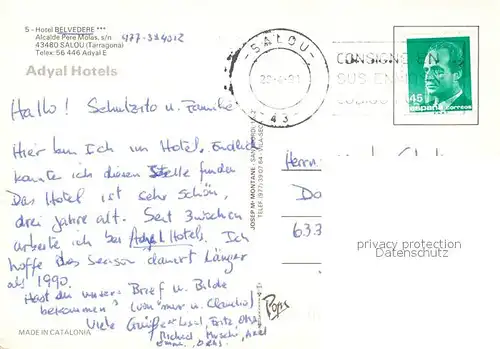 5 - Hotel BELVEDERE ***
Alcalde Pere Molas, s/n
43480 SALOU (Tarragona)
Telex: 56 446 Adyal E
977-384012
Adyal Hotels
Hallo! Schulzito u. Familie
Hier bin Ich im Hotel. Endlich
konnte ich diesen Stelle finden
Das Hotel ist sehr schön,
drei Jahre alt. Seit 3 wochen
arbeite ich bei Adyal Hotels. Ich
hoffe das Season dauert Länger
als 1990.
Hast du unsere Brief u. Bilde
bekommen? (von "mir u. Claudio)
Viele Grüße Fritz,
Michael
Papa
MADE IN CATALONIA
JOSEP Mª MONTANE - SAN
TELEF. (977) 39 07 64 - VILA-SECA
SALOU
43
CONSIGNE EN
SUS EN
45
España Correos
Herrn
Do
633
privacy protection
Datenschutz